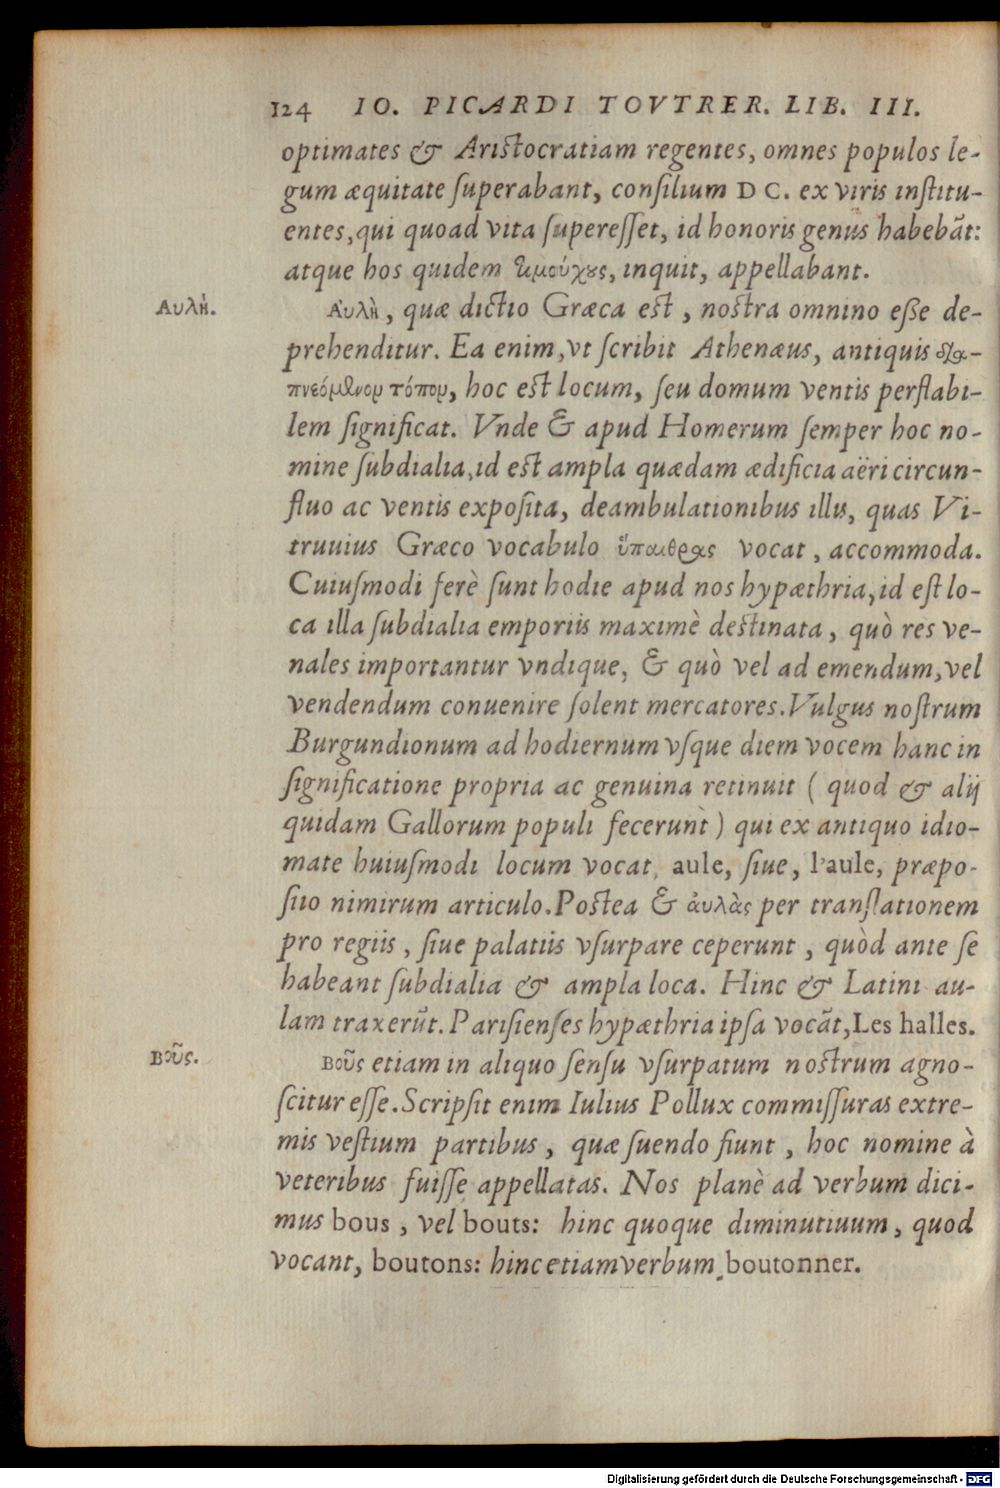 124 IO. PICARDI TOVTRER. LIB. III.
optimates & Aristocratiam regentes, omnes populos le-
gum æquitate ſuperabant, conſilium D C. ex viris inſtitu-
entes, qui quoad vita ſupereſſet, id honoris genus habebãt:
atque hos quidem τιμούχȣς, inquit, appellabant.
Αυλή.
Αὐλὴ, quæ dictio Græca est, nostra omnino eſſe de-
prehenditur. Ea enim, vt ſcribit Athenæus, antiquis δια-
πνεόμενον τόπον, hoc est locum, ſeu domum ventis perflabi-
lem ſignificat. Vnde & apud Homerum ſemper hoc no-
mine ſubdialia, id est ampla quædam ædificia aëri circun-
fluo ac ventis expoſita, deambulationibus illis, quas Vi-
truuius Græco vocabulo ὕπαιθρας vocat, accommoda.
Cuiuſmodi ferè ſunt hodie apud nos hypæthria, id eſt lo-
ca illa ſubdialia emporiis maximè destinata, quò res ve-
nales importantur vndique, & quò vel ad emendum, vel
vendendum conuenire ſolent mercatores. Vulgus noſtrum
Burgundionum ad hodiernum vſque diem vocem hanc in
ſignificatione propria ac genuina retinuit ( quod & alij
quidam Gallorum populi fecerunt ) qui ex antiquo idio-
mate huiuſmodi locum vocat, aule, ſiue, l'aule, præpo-
ſito nimirum articulo. Postea & ἀυλὰς per tranſlationem
pro regiis, ſiue palatiis vſurpare ceperunt, quòd ante ſe
habeant ſubdialia & ampla loca. Hinc & Latini au-
lam traxerũt. Pariſienſes hypæthria ipſa vocãt, Les halles.
Βοῦς.
Βοῦς etiam in aliquo ſenſu vſurpatum nostrum agno-
ſcitur eſſe. Scripſit enim Iulius Pollux commiſſuras extre-
mis veſtium partibus, quæ ſuendo fiunt, hoc nomine à
veteribus fuiſſe appellatas. Nos planè ad verbum dici-
mus bous, vel bouts: hinc quoque diminutiuum, quod
vocant, boutons: hinc etiam verbum boutonner.
Digitalisierung gefördert durch die Deutsche Forschungsgemeinschaft - DFG